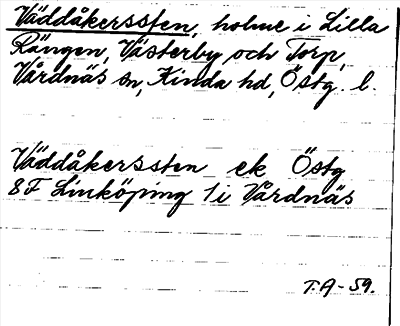 Väddåkerssten, holme i Lilla
Rängen, Västerby och Torp,
Vårdnäs sn, Kinda hd, Östg. l.
Väddåkerssten ek Östg
8F Linköping 1i Vårdnäs
T.A-59.